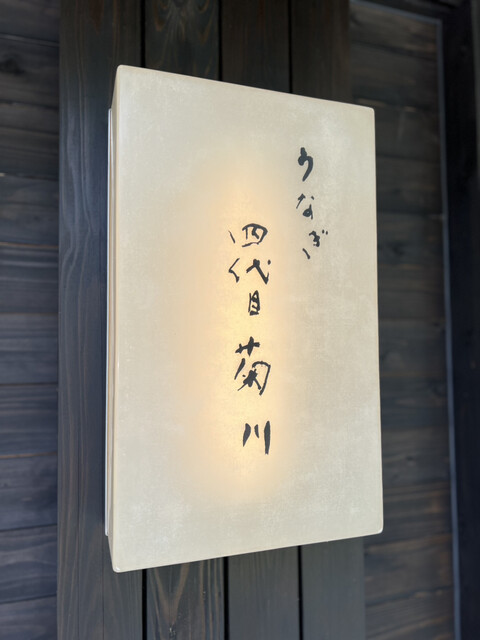 うなぎ
四代目菊川